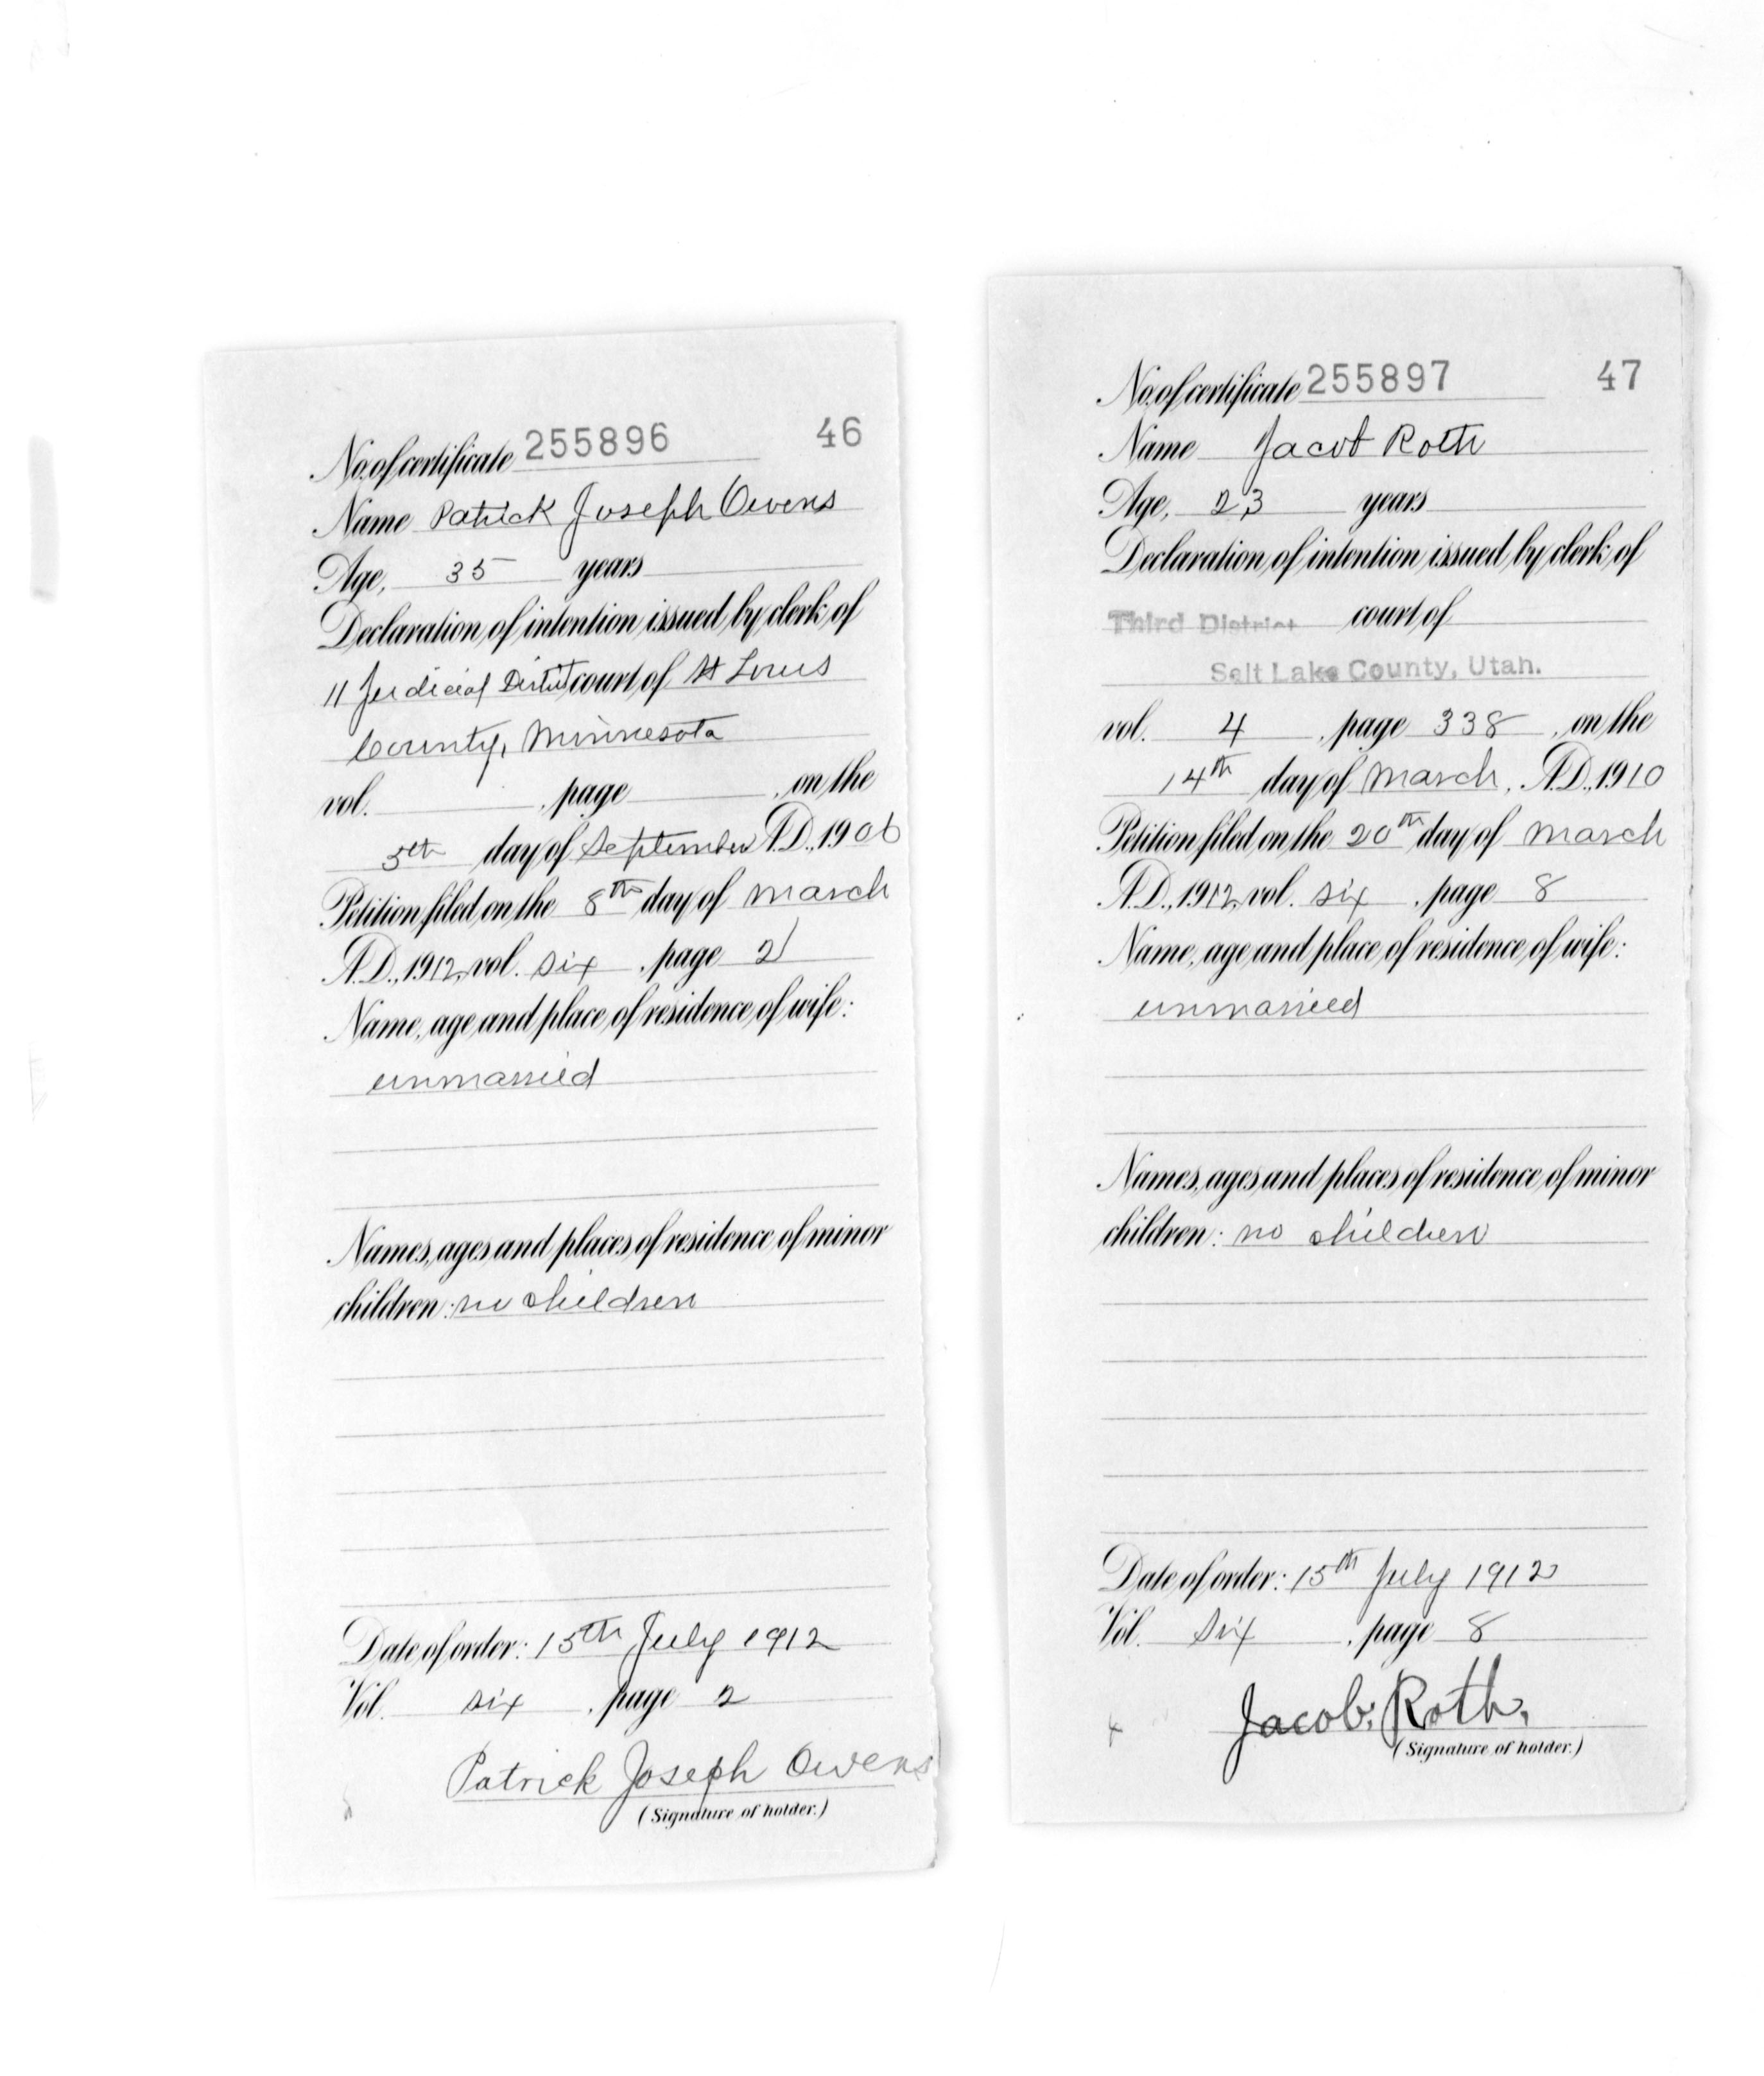 No. of certificate 255896 46
Name Patrick Joseph Owens
Age, 35 years
Declaration of intention issued by clerk of
11 Judicial District court of St Louis
County, Minnesota
vol. , page , on the
5th day of September A.D., 1906
Petition filed on the 8th day of March
A.D., 1912, vol. six , page 2
Name, age and place of residence of wife:
unmarried
Names, ages and places of residence of minor
children: no children
Date of order: 15th July 1912
Vol. six , page 2
Patrick Joseph Owens
(Signature of holder.)
No. of certificate 255897 47
Name Jacob Roth
Age, 23 years
Declaration of intention issued by clerk of
Third District court of
Salt Lake County, Utah.
vol. 4 , page 338 , on the
14th day of March, A.D., 1910
Petition filed on the 20th day of March
A.D., 1912, vol. six , page 8
Name, age and place of residence of wife:
unmarried
Names, ages and places of residence of minor
children: no children
Date of order: 15th July 1912
Vol. six , page 8
Jacob. Roth.
(Signature of holder.)